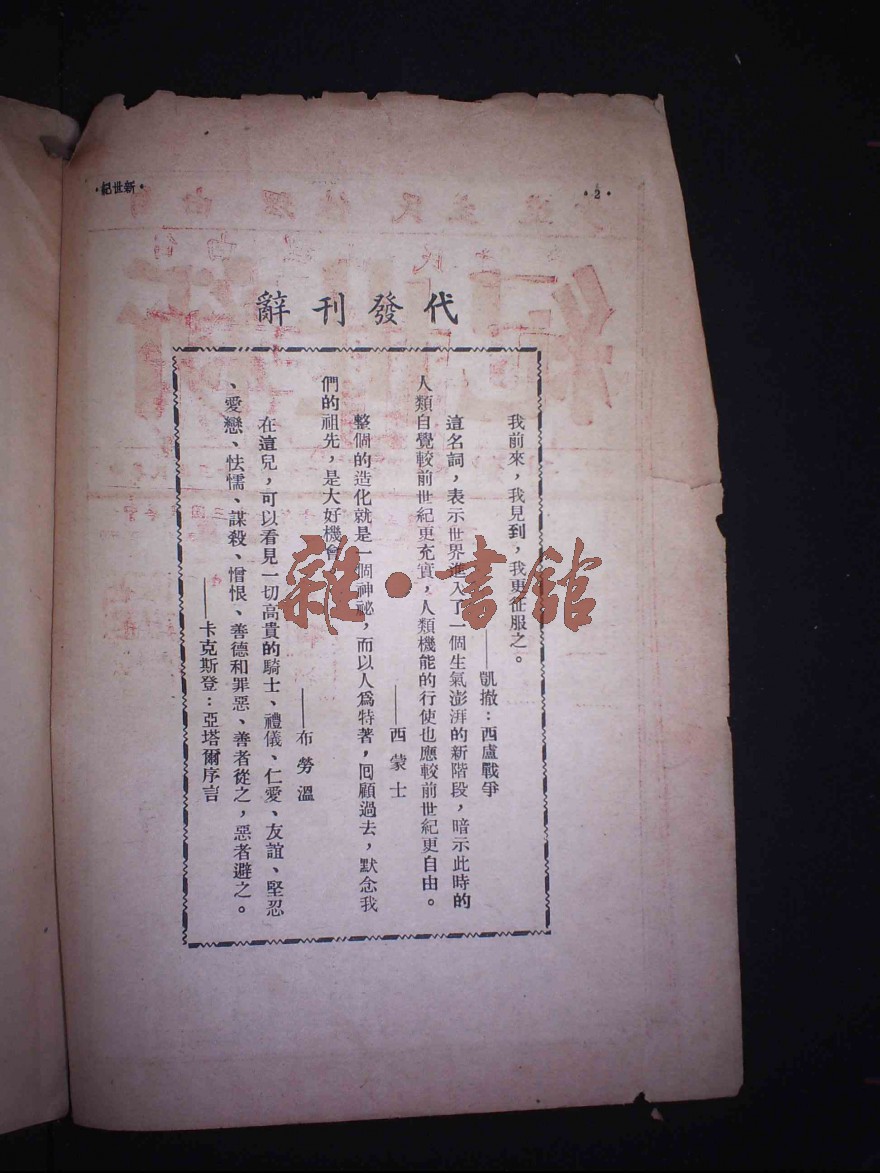 ·新世紀·
·2·
代發刊辭
我前來，我見到，我更征服之。
——凱撤：西盧戰爭
這名詞，表示世界進入了一個生氣澎湃的新階段，暗示此時的
人類自覺較前世紀更充實，人類機能的行使也應較前世紀更自由。
——西蒙士
整個的造化就是一個神祕，而以人爲特著，囘顧過去，默念我
們的祖先，是大好機會
——布勞溫
在這兒，可以看見一切高貴的騎士、禮儀、仁愛、友誼、堅忍
、愛戀、怯懦、謀殺、憎恨、善德和罪惡、善者從之，惡者避之。
——卡克斯登：亞塔爾序言
雜·書館